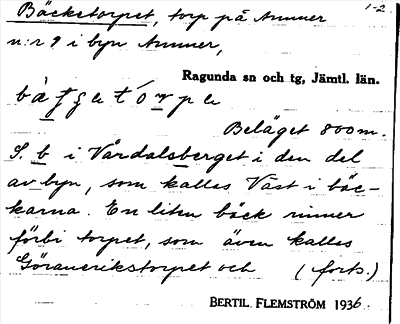 Bäckstorpet, torp på Ammer 1-2
n:r 9 i byn Ammer,
Ragunda sn och tg, Jämtl. län.
Beläget 800 m.
S. b i Vårdalsberget i den del
av byn, som kallas Väst i bäc-
karna. En liten bäck rinner
förbi torpet, som även kallas
Göranerikstorpet och (forts.)
BERTIL FLEMSTRÖM 1936.